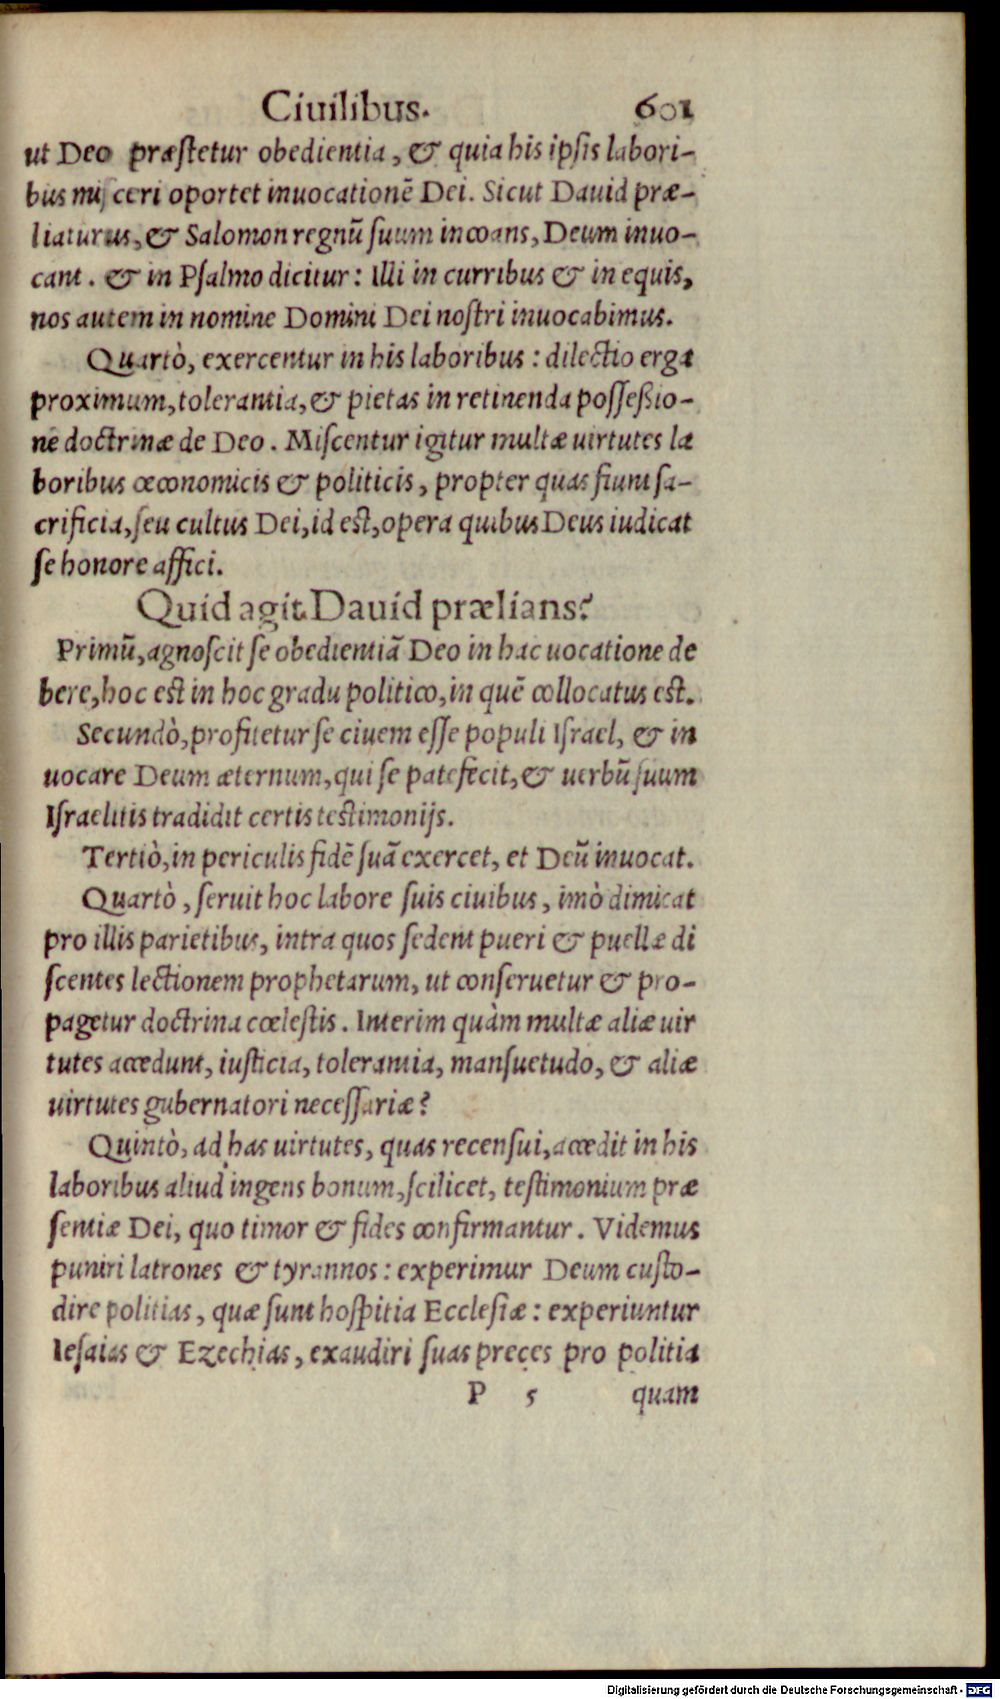 Ciuilibus. 601
ut Deo præſtetur obedientia, & quia his ipſis labori-
bus miſceri oportet inuocationē Dei. Sicut Dauid præ-
liaturus, & Salomon regnū ſuum incoans, Deum inuo-
cant. & in Pſalmo dicitur: Illi in curribus & in equis,
nos autem in nomine Domini Dei noſtri inuocabimus.
Quartò, exercentur in his laboribus: dilectio erga
proximum, tolerantia, & pietas in retinenda poſſeßio-
ne doctrinæ de Deo. Miſcentur igitur multæ uirtutes la
boribus œconomicis & politicis, propter quas fiunt ſa-
crificia, ſeu cultus Dei, id eſt, opera quibus Deus iudicat
ſe honore affici.
Quid agit Dauid prælians?
Primū, agnoſcit ſe obedientiā Deo in hac uocatione de
bere, hoc eſt in hoc gradu politico, in quē collocatus eſt.
Secundò, profitetur ſe ciuem eſſe populi Iſrael, & in
uocare Deum æternum, qui ſe patefecit, & uerbū ſuum
Iſraelitis tradidit certis teſtimonijs.
Tertiò, in periculis fidē ſuā exercet, et Deū inuocat.
Quartò, ſeruit hoc labore ſuis ciuibus, imò dimicat
pro illis parietibus, intra quos ſedent pueri & puellæ di
ſcentes lectionem prophetarum, ut conſeruetur & pro-
pagetur doctrina cœleſtis. Interim quàm multæ aliæ uir
tutes accedunt, iuſticia, tolerantia, manſuetudo, & aliæ
uirtutes gubernatori neceſſariæ?
Quintò, ad has uirtutes, quas recenſui, accedit in his
laboribus aliud ingens bonum, ſcilicet, teſtimonium præ
ſentiæ Dei, quo timor & fides confirmantur. Videmus
puniri latrones & tyrannos: experimur Deum cuſto-
dire politias, quæ ſunt hoſpitia Eccleſiæ: experiuntur
Ieſaias & Ezechias, exaudiri ſuas preces pro politia
P 5 quam
Digitalisierung gefördert durch die Deutsche Forschungsgemeinschaft - DFG